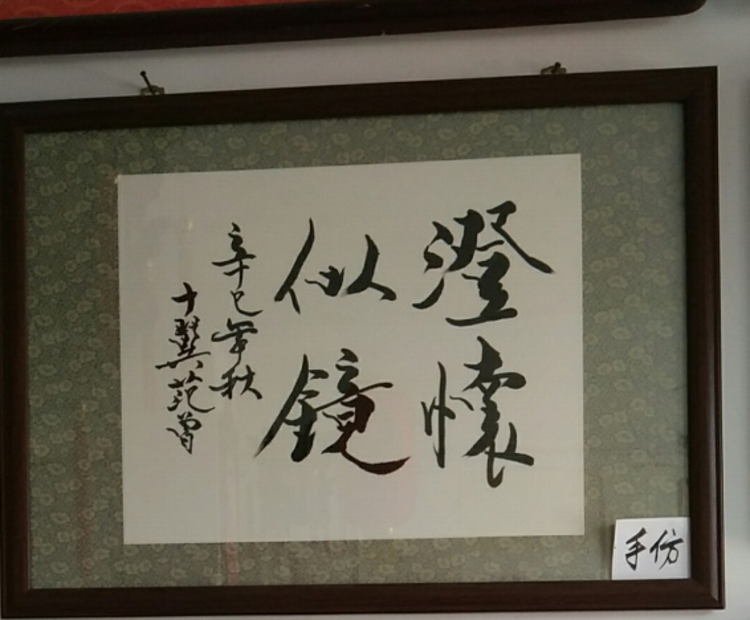 澄懷
似鏡
辛巳年秋
十翼范曾
手仿